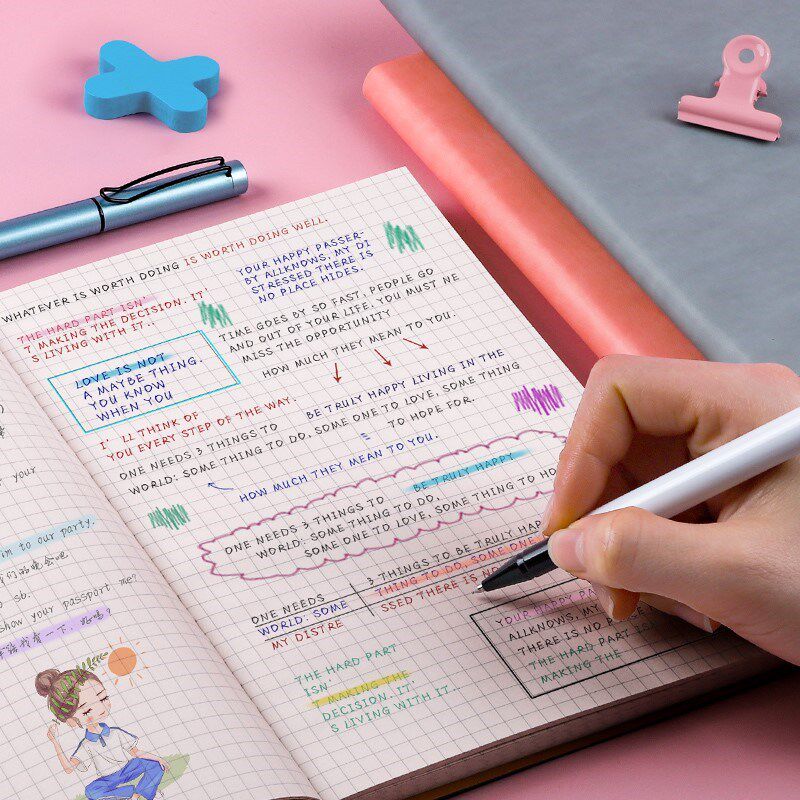 WHATEVER IS WORTH DOING IS WORTH DOING WELL.
THE HARD PART ISN'
T MAKING THE DECISION. IT'
S LIVING WITH IT..
YOUR HAPPY PASSER-
BY ALLKNOWS, MY DI
STRESSED THERE IS
NO PLACE HIDES.
LOVE IS NOT
A MAYBE THING.
YOU KNOW
WHEN YOU
TIME GOES BY SO FAST, PEOPLE GO
AND OUT OF YOUR LIFE. YOU MUST NE
MISS THE OPPORTUNITY
HOW MUCH THEY MEAN TO YOU.
I' LL THINK OF
YOU EVERY STEP OF THE WAY.
BE TRULY HAPPY LIVING IN THE
ONE NEEDS 3 THINGS TO
WORLD: SOME THING TO DO, SOME ONE TO LOVE, SOME THING
TO HOPE FOR.
HOW MUCH THEY MEAN TO YOU.
BE TRULY HAPPY
ONE NEEDS 3 THINGS TO
WORLD: SOME THING TO DO,
SOME ONE TO LOVE, SOME THING TO HO
ONE NEEDS
WORLD: SOME
MY DISTRE
3 THINGS TO BE TRULY HAP
THING TO DO, SOME ONE
SSED THERE IS NO
YOUR HAPPY PA
ALLKNOWS, MY
THERE IS NO PLACE
THE HARD PART ISN
MAKING THE
THE HARD PART
ISN'
T MAKING THE
DECISION. IT'
S LIVING WITH IT..
your
im to our party.
so.
show your passport me?